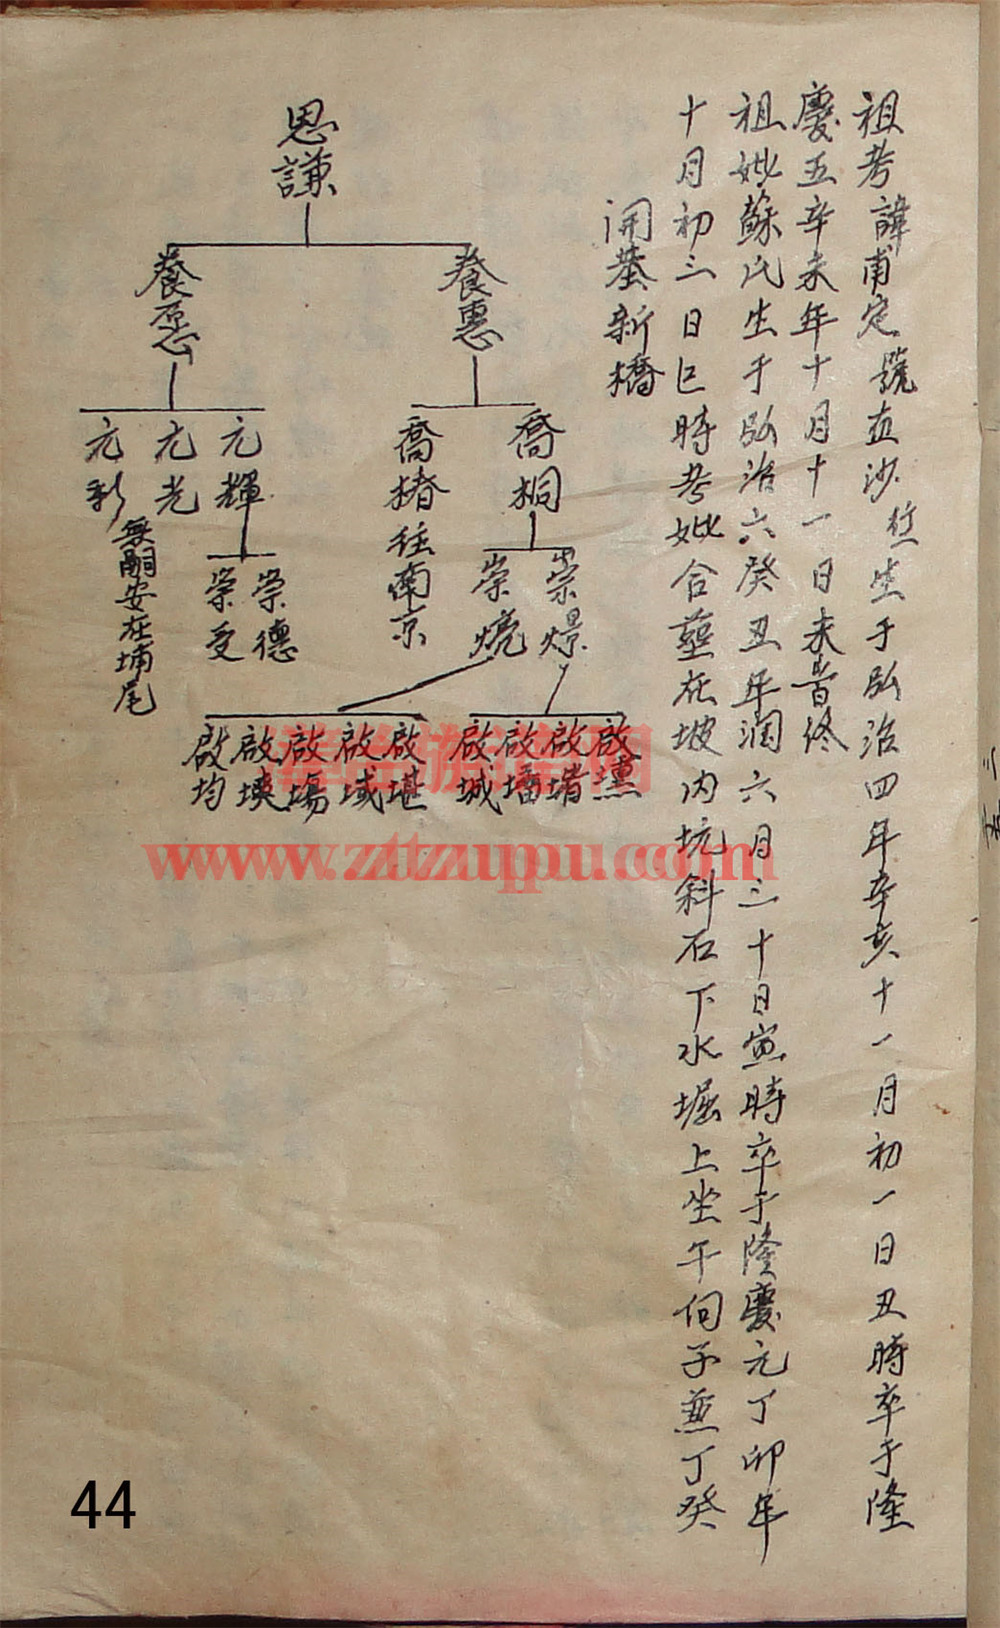 祖考諱甫定號直沙生于弘治四年辛亥十一月初一日丑時卒于隆
慶五辛未年十月十一日未時終
祖妣蘇氏生于弘治六癸丑年潤六月三十日寅時卒于隆慶元丁卯年
十月初三日巳時考妣合塟在坡內坑斜石下水堀上坐午向子兼丁癸
開基新橋
思謙
養惠
養愿
喬桐
喬椿往南京
元輝
元光
元彩
無嗣安在埔尾
崇燝
崇燒
崇德
崇受
啟
啟墻
啟墦
啟城
啟堪
啟域
啟塲
啟
啟均
華登族譜网
www.ztzupu.com
44